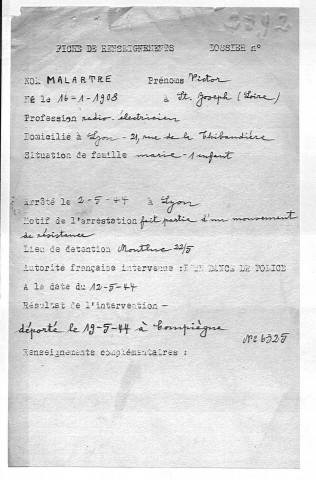 2392
FICHE DE RENSEIGNEMENTS DOSSIER n°
NOM MALARTRE Prénoms Victor
Né le 16-1-1908 à St. Joseph (Loire)
Profession radio-électricien
Domicilié à Lyon - 21, rue de la Thibaudière
Situation de famille marié - 1 enfant
Arrêté le 2-5-44 à Lyon
Motif de l'arrestation fait partie d'un mouvement
de résistance
Lieu de détention Montluc 22/5
Autorité française intervenue : INTENDANCE DE POLICE
à la date du 12-5-44
Résultat de l'intervention -
déporté le 19-5-44 à Compiègne
N° 6325
Renseignements complémentaires :